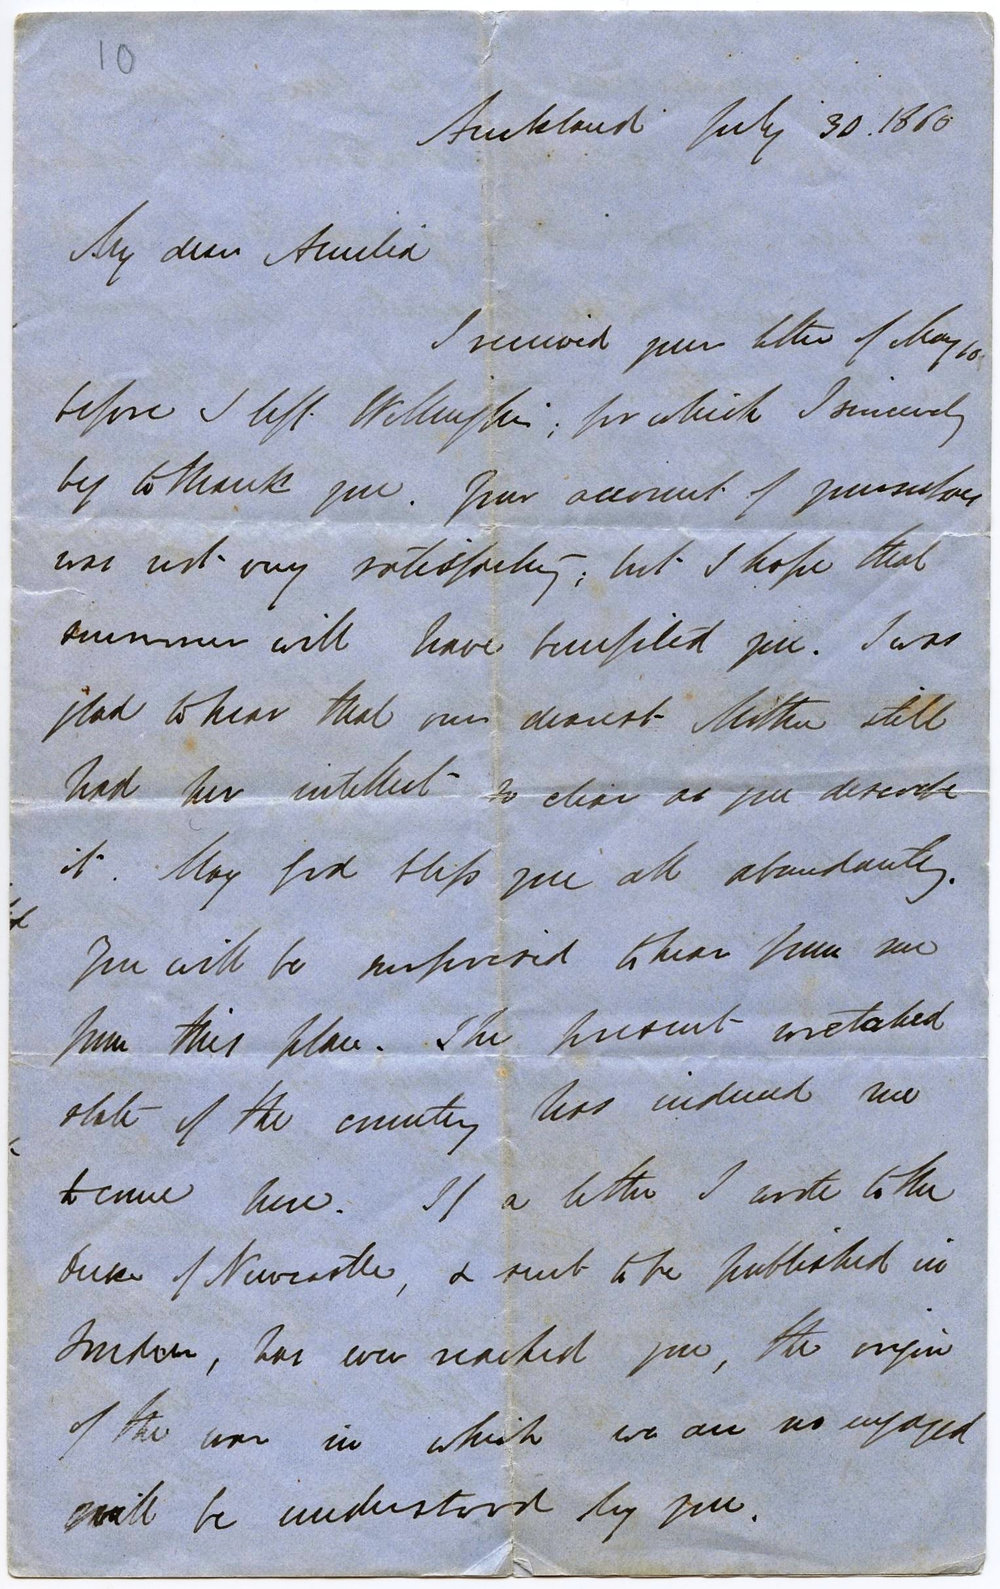 10
Auckland July 30. 1860
My dear Amelia
I received your letter of May 10
before I left Wellington; for which I sincerely
beg to thank you. Your account of yourselves
was not very satisfactory; but I hope that
summer will have benefited you. I was
glad to hear that our dearest Mother still
had her intellect so clear as you describe
it. May God bless you all abundantly.
You will be surprised to hear from me
from this place. The present wretched
state of the country has induced me
to come here. If a letter I wrote to the
Duke of Newcastle, & sent to be published in
London, has ever reached you, the origin
of the war in which we are no engaged
will be understood by you.